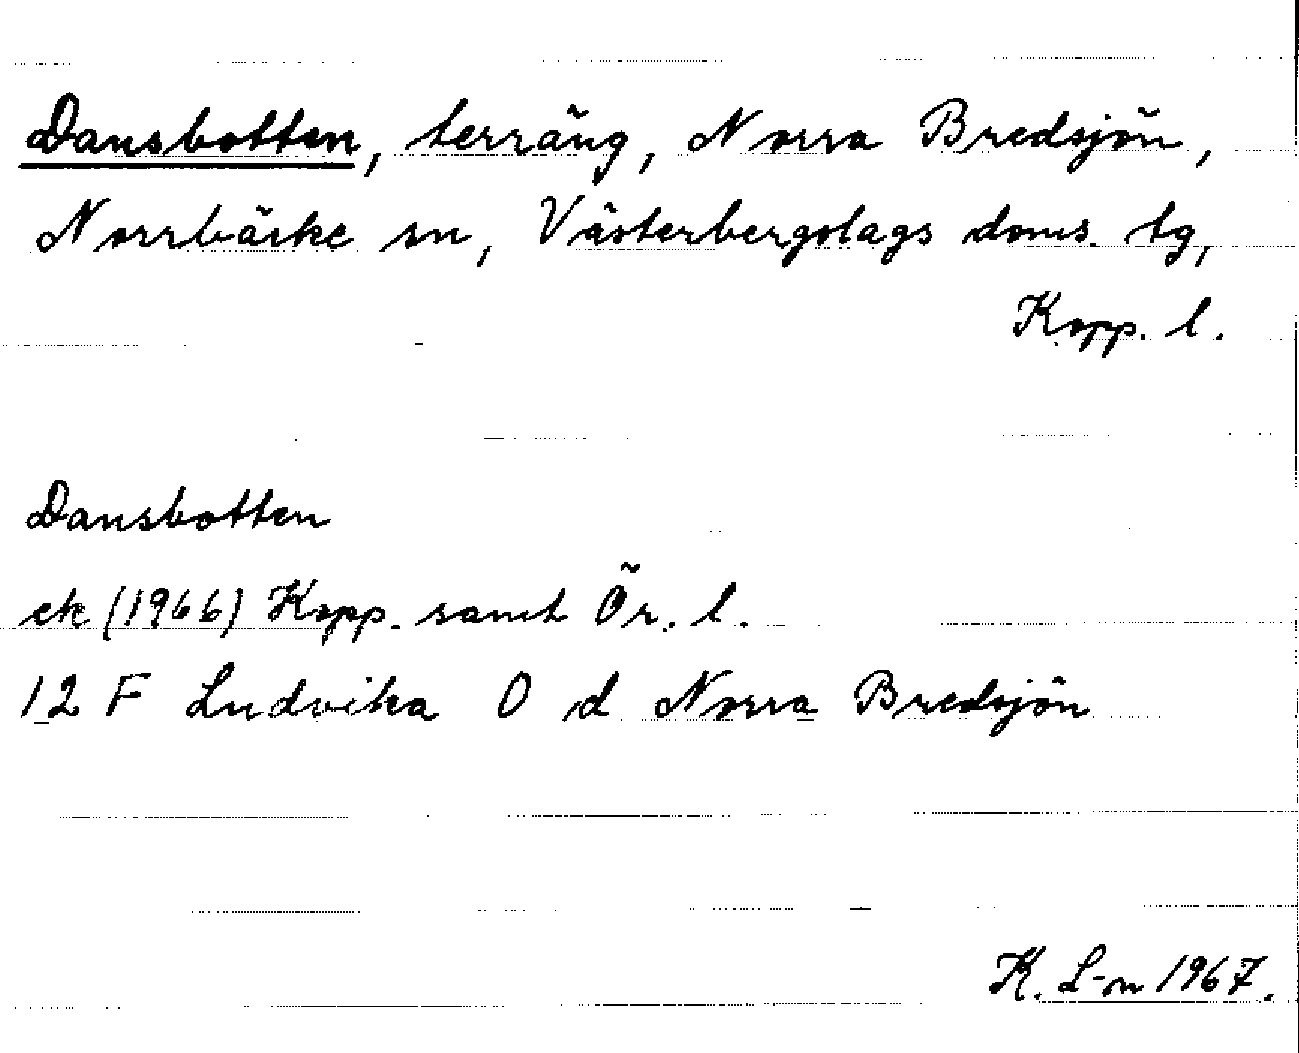 Dansbotten, terräng, Norra Bredsjön,
Norrbärke sn, Västerbergslags doms. tg,
Kopp. l.
Dansbotten
ek (1966) Kopp. samt Ör. l.
12 F Ludvika O d Norra Bredsjön
K. L-n 1967.